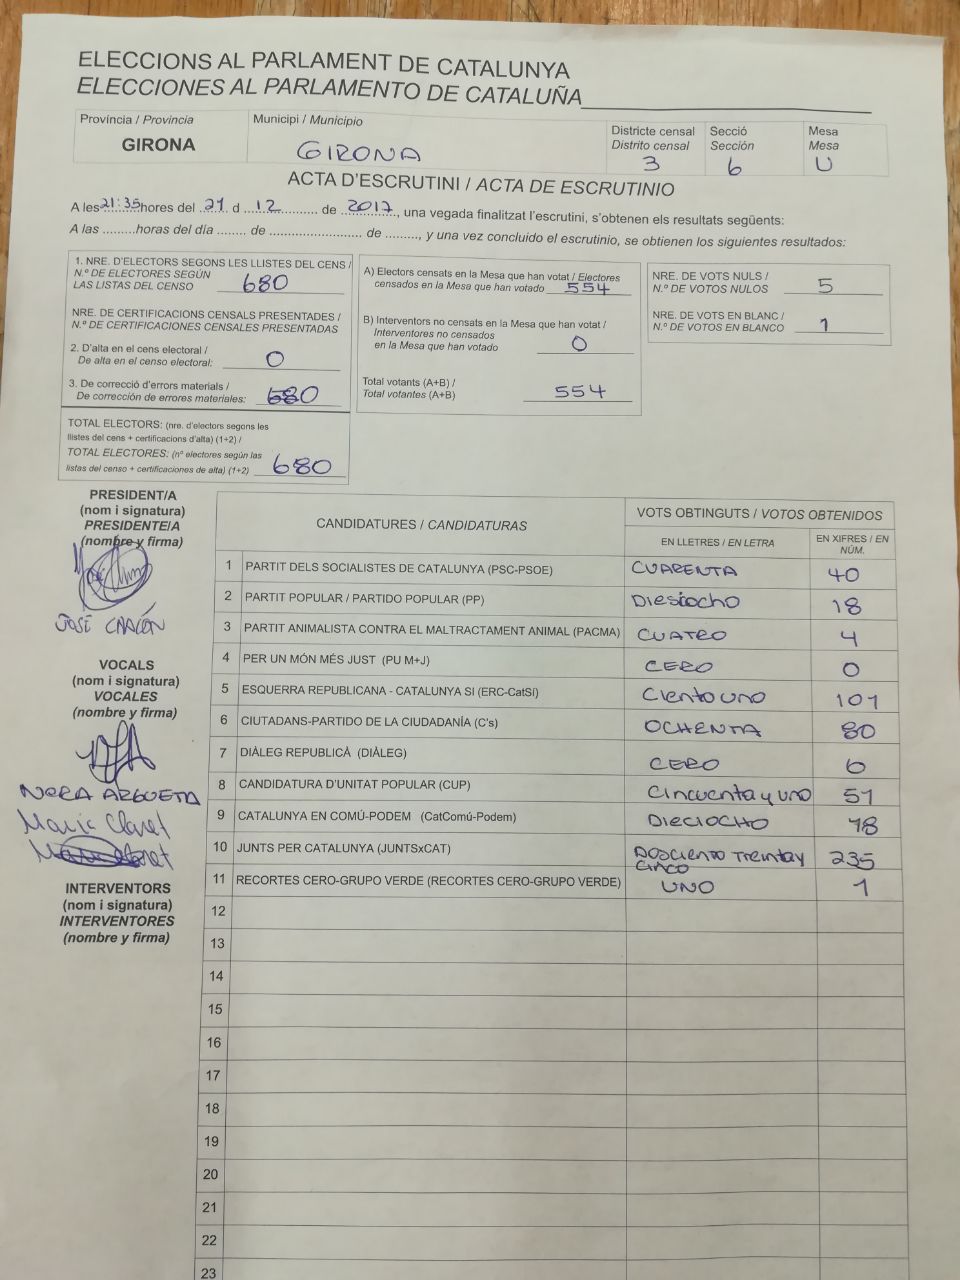 ELECCIONS AL PARLAMENT DE CATALUNYA
ELECCIONES AL PARLAMENTO DE CATALUÑA
Província / Provincia
GIRONA
Municipi / Municipio
GIRONA
Districte censal
Distrito censal
3
Secció
Sección
6
Mesa
Mesa
U
ACTA D'ESCRUTINI / ACTA DE ESCRUTINIO
A les 21:35 hores del 21 d 12 de 2017, una vegada finalitzat l'escrutini, s'obtenen els resultats següents:
A las .........horas del día ........ de .......................... de ........., y una vez concluido el escrutinio, se obtienen los siguientes resultados:
1. NRE. D'ELECTORS SEGONS LES LLISTES DEL CENS /
N.º DE ELECTORES SEGÚN
LAS LISTAS DEL CENSO 680
NRE. DE CERTIFICACIONS CENSALS PRESENTADES /
N.º DE CERTIFICACIONES CENSALES PRESENTADAS
2. D'alta en el cens electoral /
De alta en el censo electoral: 0
3. De correcció d'errors materials /
De corrección de errores materiales: 680
TOTAL ELECTORS: (nre. d'electors segons les
llistes del cens + certificacions d'alta) (1+2) /
TOTAL ELECTORES: (nº electores según las
listas del censo + certificaciones de alta) (1+2) 680
A) Electors censats en la Mesa que han votat / Electores
censados en la Mesa que han votado 554
B) Interventors no censats en la Mesa que han votat /
Interventores no censados
en la Mesa que han votado 0
Total votants (A+B) /
Total votantes (A+B) 554
NRE. DE VOTS NULS /
N.º DE VOTOS NULOS 5
NRE. DE VOTS EN BLANC /
N.º DE VOTOS EN BLANCO 1
PRESIDENT/A
(nom i signatura)
PRESIDENTE/A
(nombre y firma)
JOSÉ
VOCALS
(nom i signatura)
VOCALES
(nombre y firma)
NORA ARGUETA
Maria Claret
INTERVENTORS
(nom i signatura)
INTERVENTORES
(nombre y firma)
CANDIDATURES / CANDIDATURAS
VOTS OBTINGUTS / VOTOS OBTENIDOS
EN LLETRES / EN LETRA
EN XIFRES / EN
NÚM.
1 PARTIT DELS SOCIALISTES DE CATALUNYA (PSC-PSOE) CUARENTA 40
2 PARTIT POPULAR / PARTIDO POPULAR (PP) Diesiocho 18
3 PARTIT ANIMALISTA CONTRA EL MALTRACTAMENT ANIMAL (PACMA) CUATRO 4
4 PER UN MÓN MÉS JUST (PU M+J) CERO 0
5 ESQUERRA REPUBLICANA - CATALUNYA SI (ERC-CatSí) Ciento uno 101
6 CIUTADANS-PARTIDO DE LA CIUDADANÍA (C's) OCHENTA 80
7 DIÀLEG REPUBLICÀ (DIÀLEG) CERO 0
8 CANDIDATURA D'UNITAT POPULAR (CUP) Cincuenta y uno 51
9 CATALUNYA EN COMÚ-PODEM (CatComú-Podem) DIECIOCHO 18
10 JUNTS PER CATALUNYA (JUNTSxCAT) DOSCIENTO Treinta y 235
CINCO
11 RECORTES CERO-GRUPO VERDE (RECORTES CERO-GRUPO VERDE) UNO 1
12
13
14
15
16
17
18
19
20
21
22
23